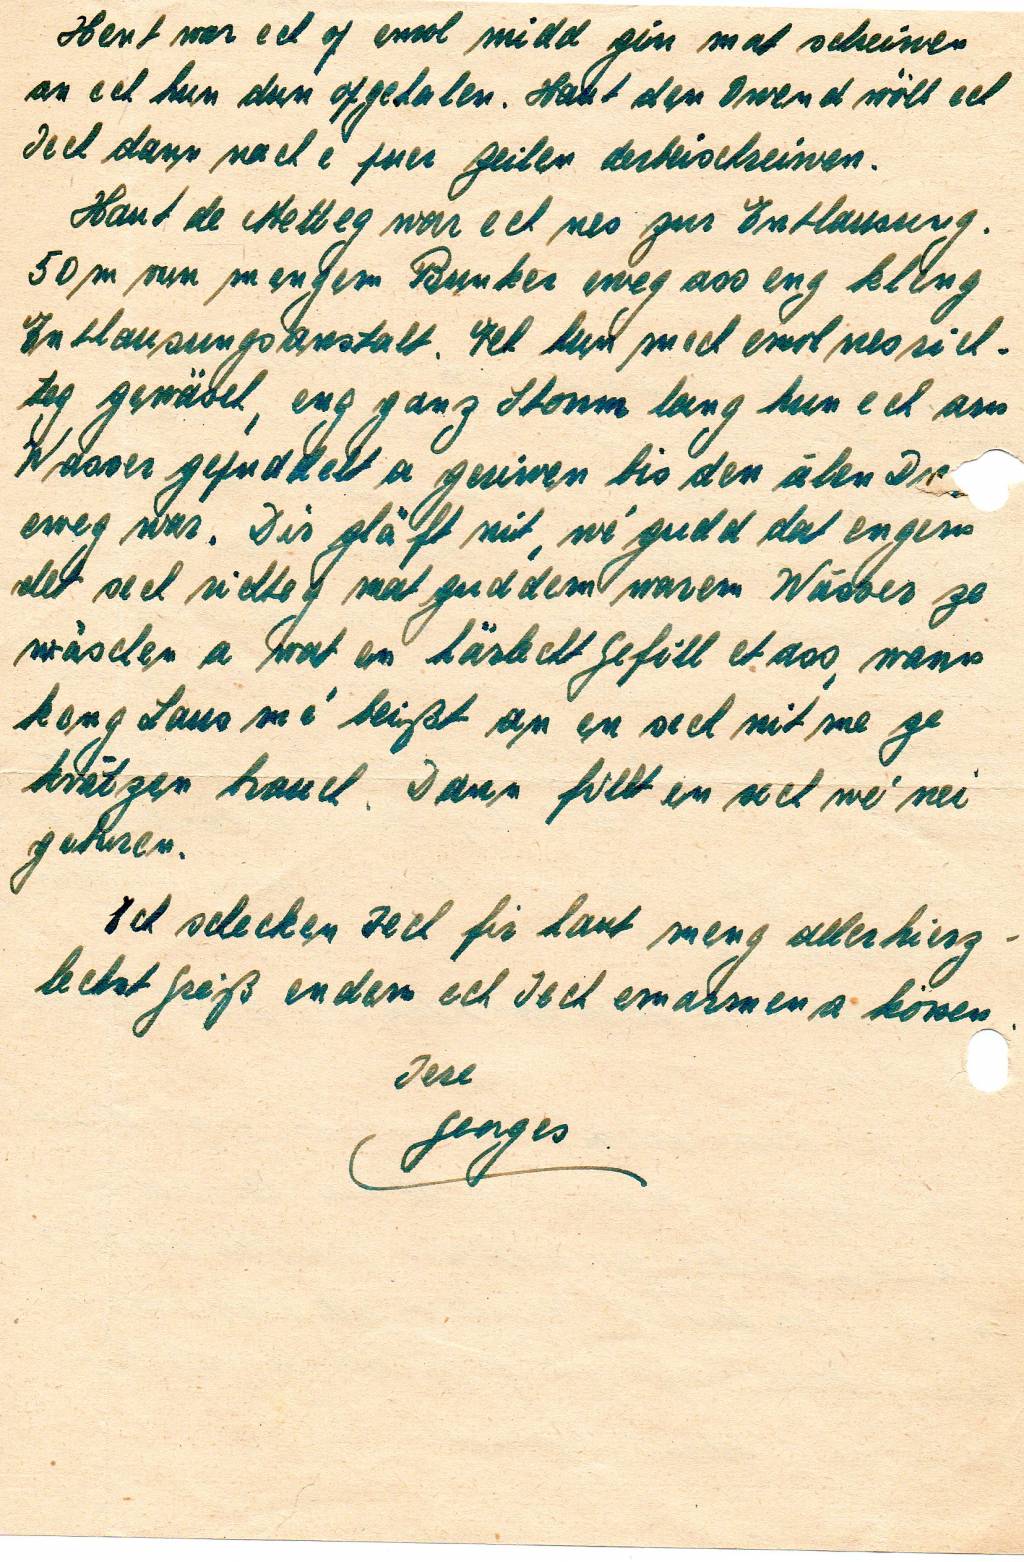 Hent war ech of emol midd gin mat schreiwen
an ech hun dun opgehalen. Haut den Owend wöll ech
Iech dann nach e puer Zeilen derbeischreiwen.
Haut de Metteg war ech nes zur Entlausung.
50 m vun mengem Bunker eweg ass eng kleng
Entlausungsanstalt. Ech hun mech emol nes rich-
teg gewäsch, eng ganz Stonn lang hun ech am
Wasser gefuddelt a geriwen bis den älen
eweg war. Dir gläft nit, wé gudd dat engem
det sech richteg mat guddem warem Wasser ze
wäschen a wat en härlecht Gefill et ass, wann
keng Laus mé beißt an en sech nit me ze
krätzen brauch. Dann fillt en sech wé nei
geburen.
Ech schecken Iech fir haut meng allerhierz-
lechst Gréiß endem ech Iech emarmen a kössen.
Iere
Georges